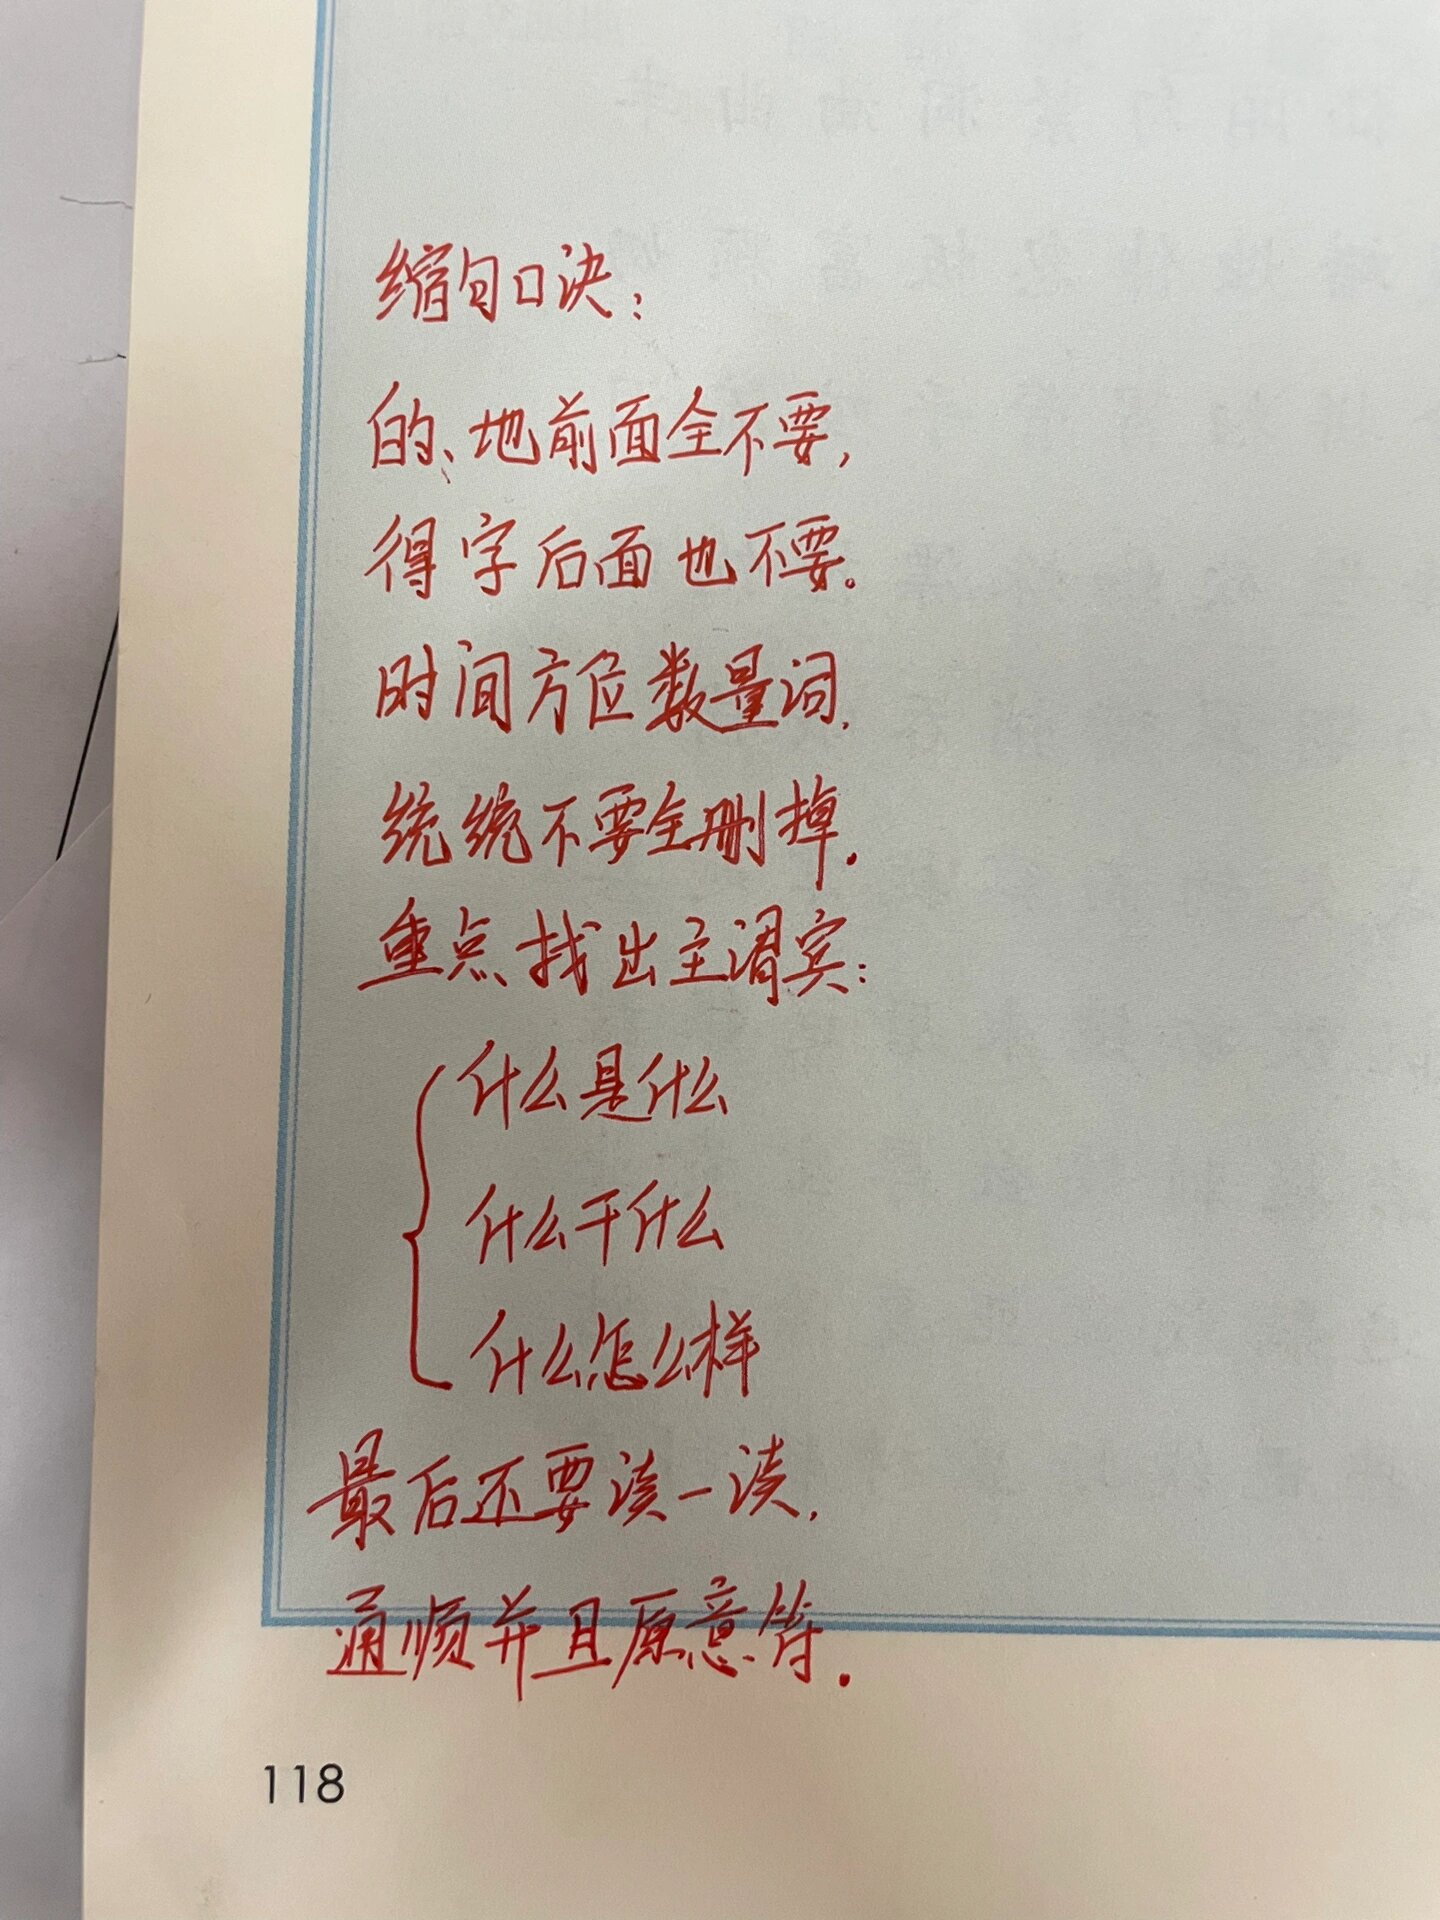 缩句口决：
的、地前面全不要，
得字后面也不要。
时间方位数量词，
统统不要全删掉．
重点找出主谓宾：
什么是什么
什么干什么
什么怎么样
最后还要读一读，
通顺并且原意符．
118